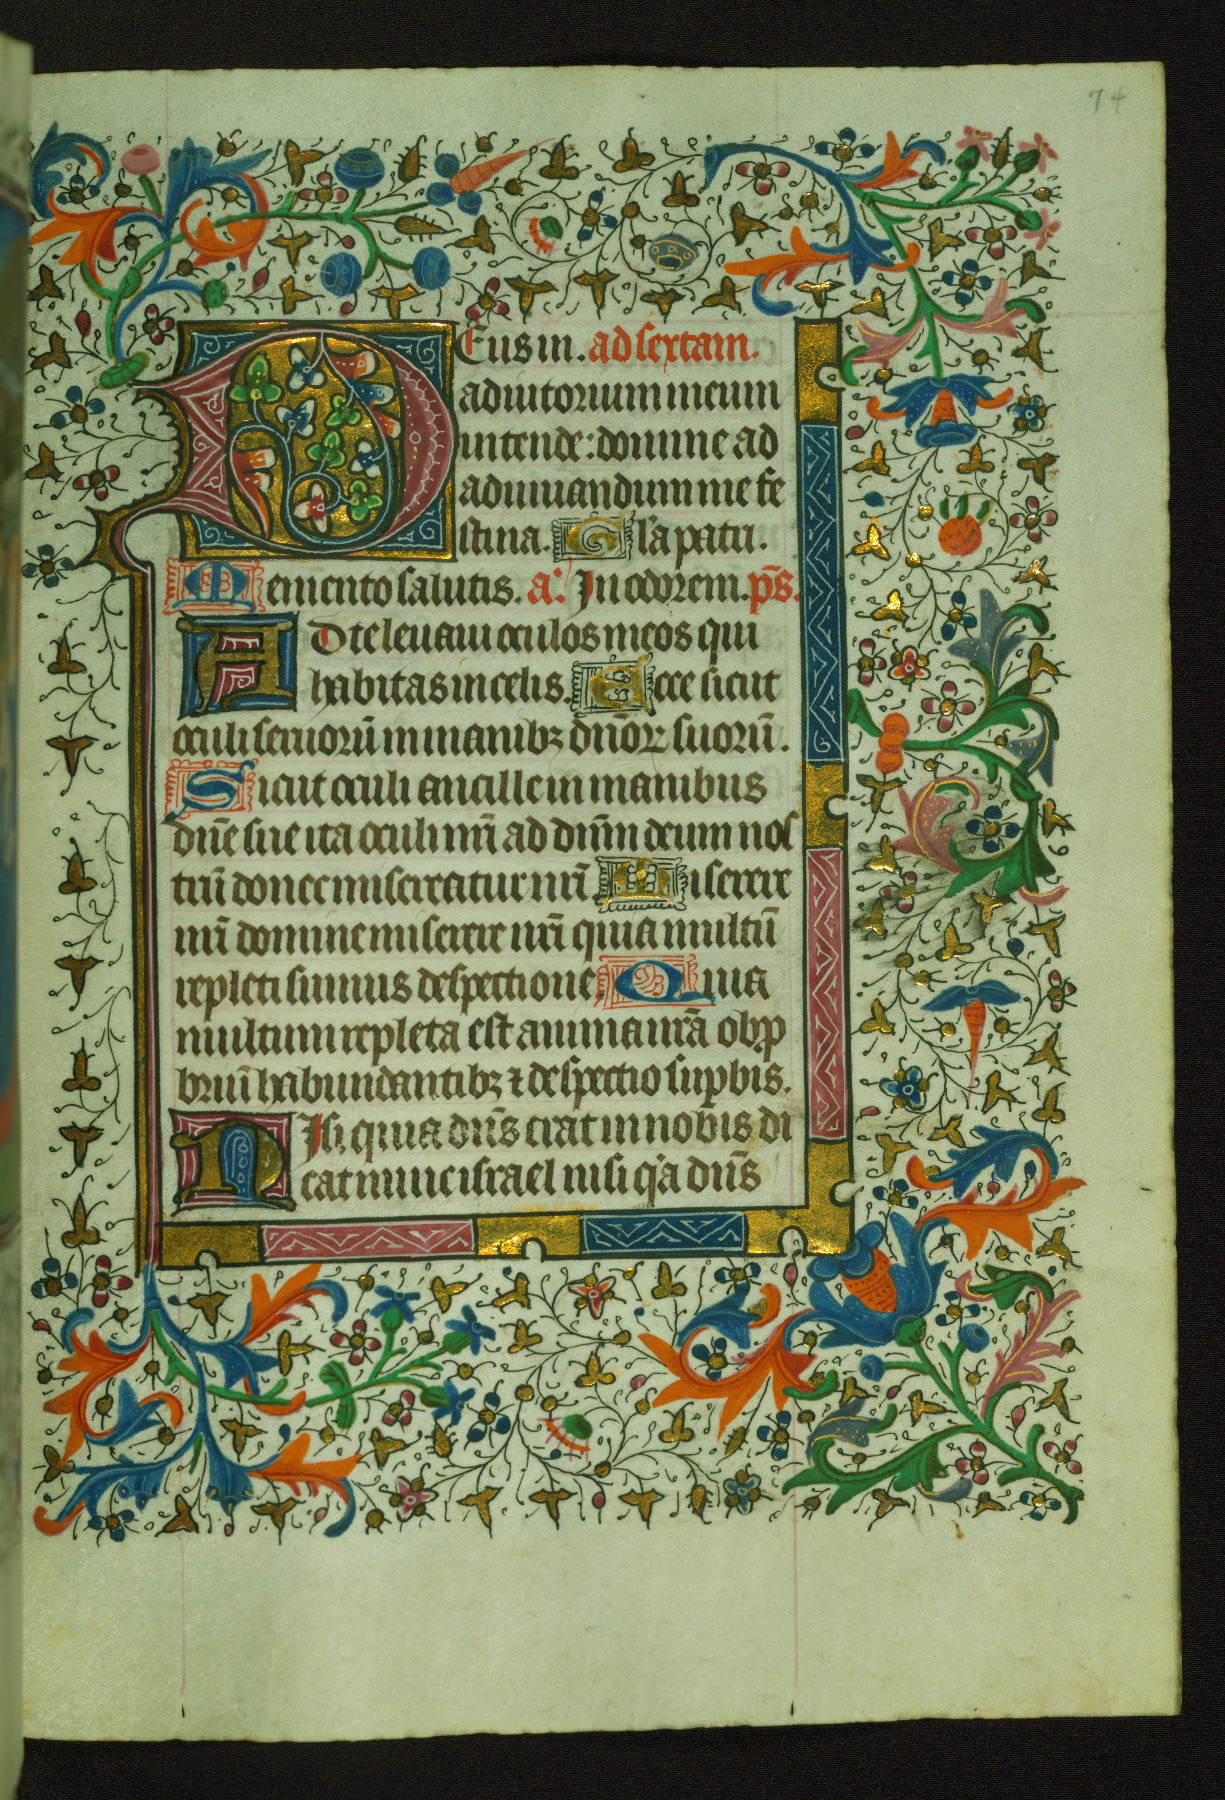 74
Deus in. ad sextam.
adiutorium meum
intende: domine ad
adiuuandum me fe
stina. Gl'a patri.
Memento salutis. a͛. In odorem. p̄s.
AD te leuaui oculos meos qui
habitas in celis. Ecce sicut
oculi seruorū in manibꝫ dn̄oꝝ suorū.
Sicut oculi ancille in manibus
dn̄e sue ita oculi nr̄i ad dn̄m deum nos
trū donec misereatur nr̄i Miserere
nr̄i domine miserere nr̄i quia multū
repleti sumus despectione Quia
multum repleta est anima nr̄a obp̱
briū habundantibꝫ ⁊ despectio sup̱bis.
NIsi quia dn̄s erat in nobis di
cat nunc israel nisi q'a dn̄s